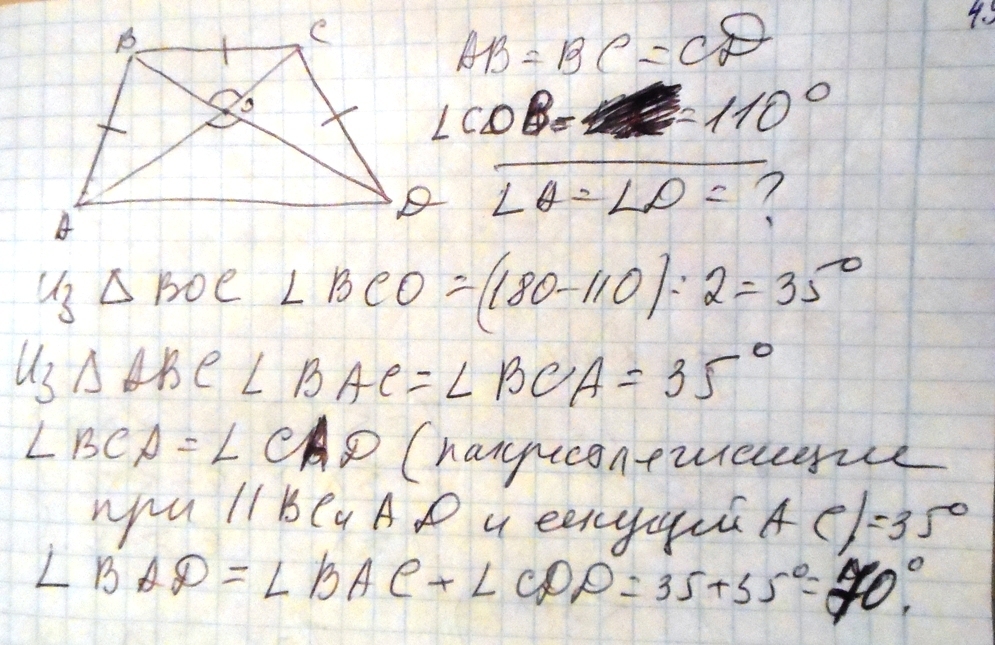 49
B C
O
A D
AB = BC = CD
∠COB = = 110°
∠A = ∠D = ?
Из Δ BOC ∠ BCO = (180-110) : 2 = 35°
Из Δ ABC ∠ BAC = ∠ BCA = 35°
∠ BCA = ∠ CAD (накрест лежащие
при || BC и AD и секущей AC) = 35°
∠ BAD = ∠ BAC + ∠ CDD = 35+35° = 70°.